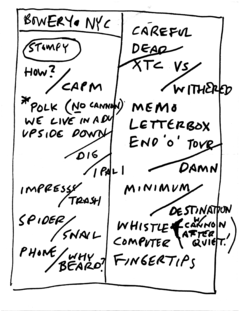 BOWERY • NYC
STOMPY
HOW?
/ CAPM
* POLK (NO CANNON)
WE LIVE IN A DU
UPSIDE DOWN
/ DIG
/ PALI
IMPRESS /
TRASH
SPIDER /
SNAIL
PHONE / WHY
BEARD?
CAREFUL
DEAD
XTC VS /
WITHERED
MEMO
LETTERBOX
END 'O' TOUR
/ DAMN
MINIMUM /
DESTINATION
WHISTLE (W/ CANNON
COMPUTER AFTER
QUIET.)
FINGERTIPS